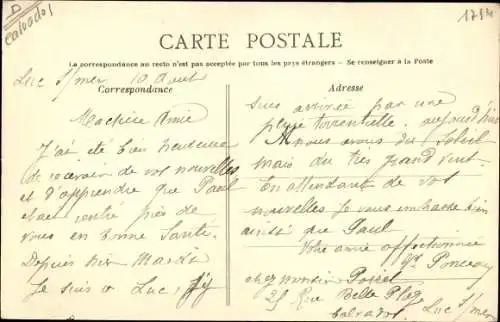 D
Calvados
1714
CARTE POSTALE
La correspondance au recto n'est pas acceptée par tous les pays étrangers — Se renseigner à la Poste
Correspondance
Adresse
Luc s/mer 10 Aout
Ma chère Amie
J'ai été bien heureuse
de recevoir de vos nouvelles
et d'apprendre que Paul
était rentré près de
vous en bonne Santé.
Depuis hier Mardi
Je suis à Luc, j'y
suis arrivée par une
pluie torrentielle, aujourd'hui
nous avons du Soleil
mais du très grand vent.
En attendant de vos
nouvelles Je vous embrasse bien
ainsi que Paul
Votre amie affectionnée
Poncey
chez monsieur Poiret
25 Rue Belle Plage
Luc s/mer
Calvados